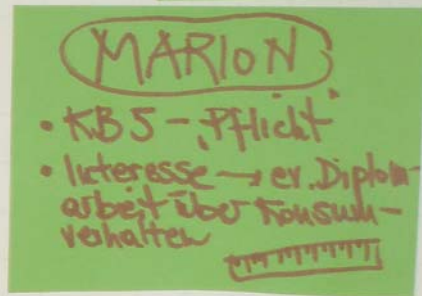 MARION
• KB5 - "Pflicht"
• Interesse → ev. Diplom-
arbeit über Konsum-
verhalten